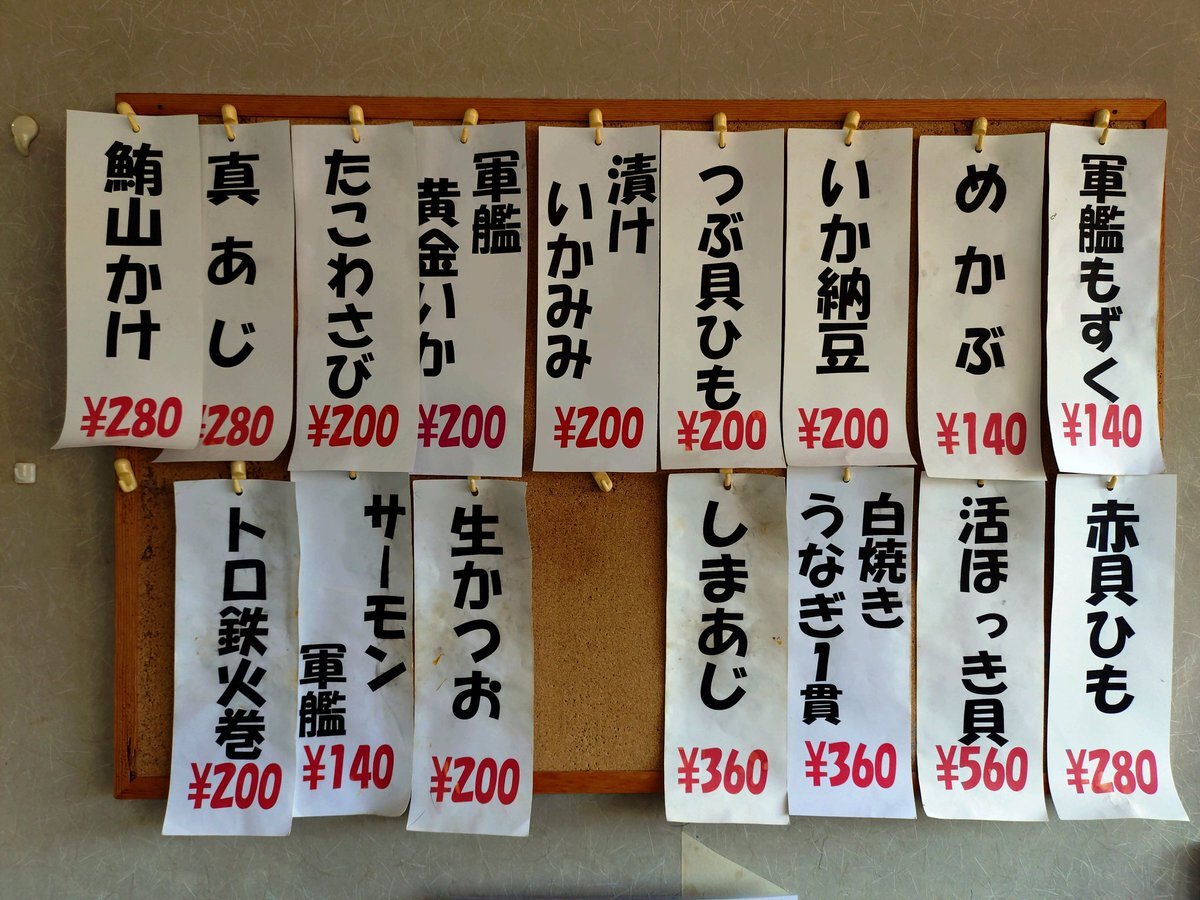 軍艦もずく
¥140
めかぶ
¥140
いか納豆
¥200
つぶ貝ひも
¥200
漬け
いかみみ
¥200
軍艦
黄金いか
¥200
たこわさび
¥200
真あじ
¥280
鮪山かけ
¥280
赤貝ひも
¥280
活ほっき貝
¥560
白焼き
うなぎ1貫
¥360
しまあじ
¥360
生かつお
¥200
サーモン
軍艦
¥140
トロ鉄火巻
¥200